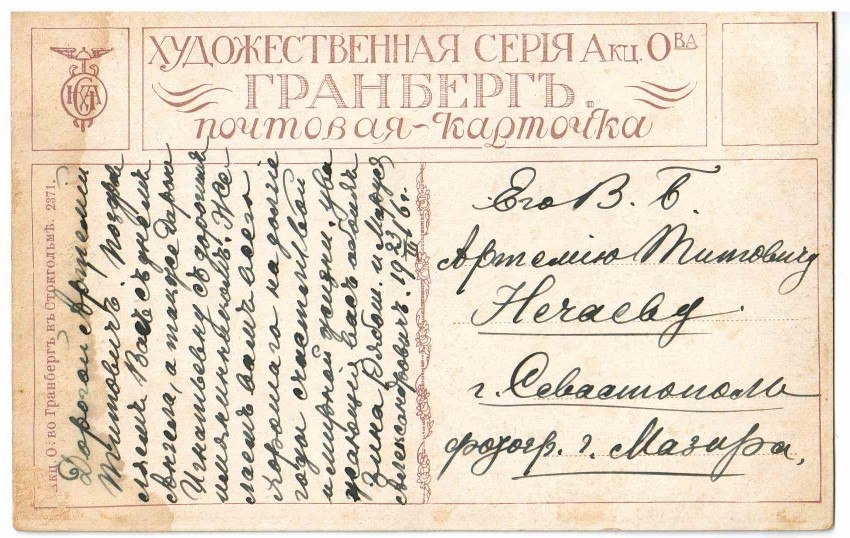 ХУДОЖЕСТВЕННАЯ СЕРІЯ Акц. О‎ВА
ГРАНБЕРГЪ.
почтовая-карточка
Акц. О-во Гранбергъ въ Стокгольмѣ. 2371.
Дорогой Артемій
Титовичъ! поздра
вляемъ Васъ съ днемъ
Ангела, а также Дарью
Игнатьевну съ дорогимъ
имянинникомъ. Же-
лаемъ вамъ всего
хорошаго на долгіе
годы счастливой
и мирной жизни. Ува
жающія васъ
Зина и Маруся
Александровичъ. 19 23/III 16 г.
Его В. Б.
Артемію Титовичу
Нечаеву
г. Севастополь
фотогр. г. Мазура,